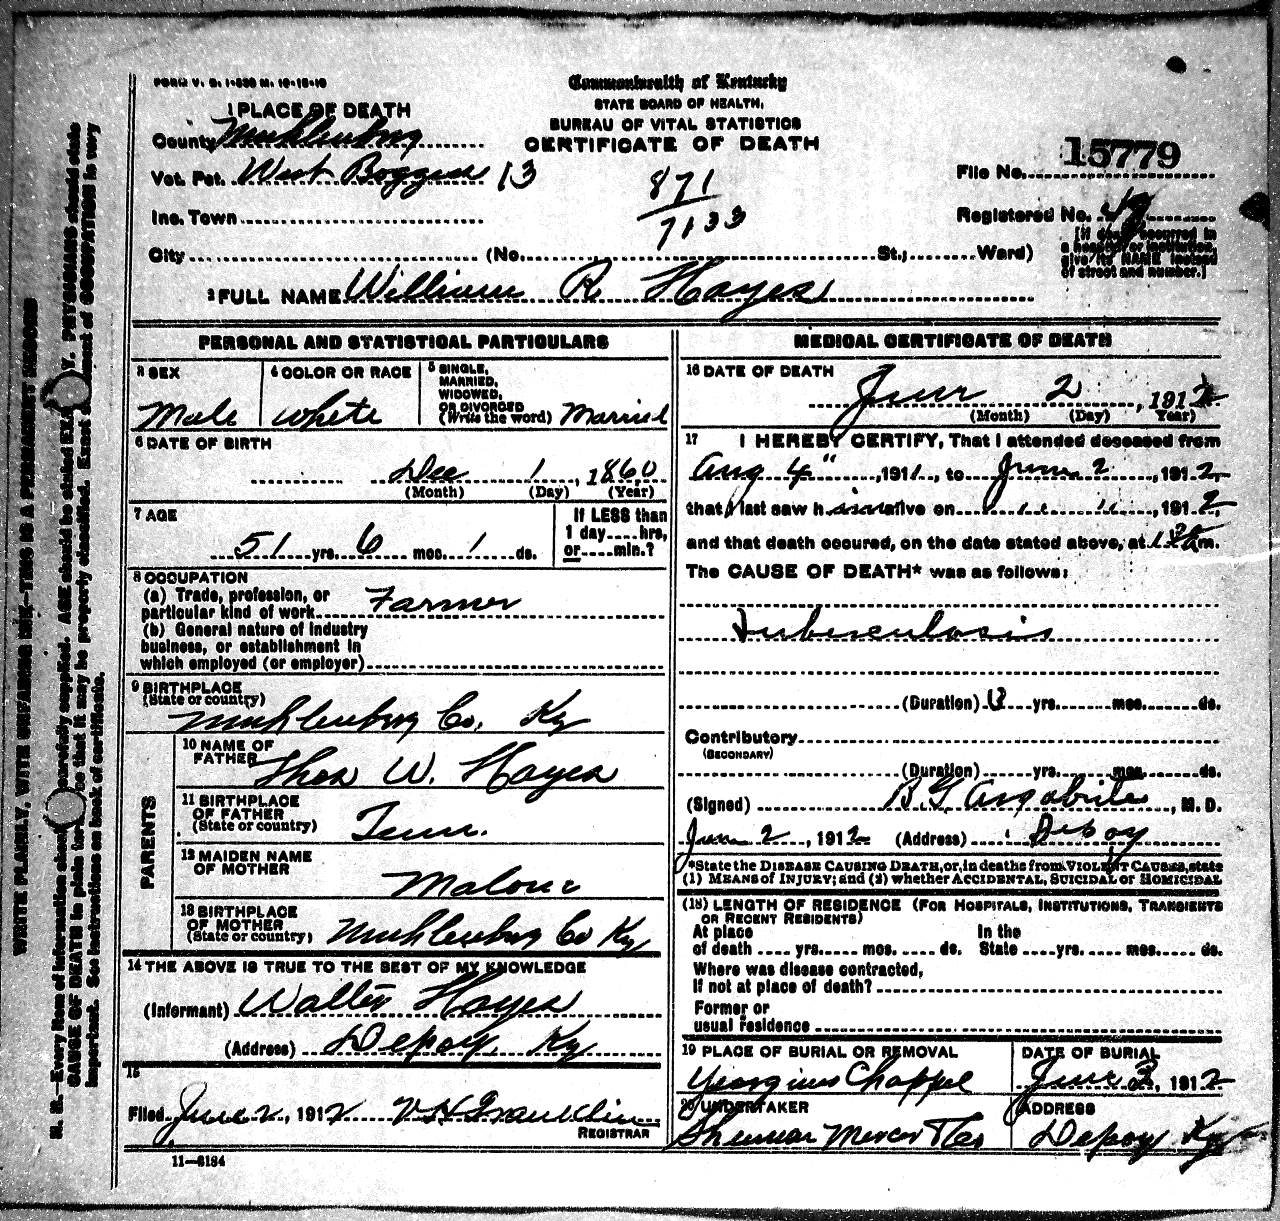 FORM V. S. 1-
Commonwealth of Kentucky
STATE BOARD OF HEALTH,
BUREAU OF VITAL STATISTICS
CERTIFICATE OF DEATH
1 PLACE OF DEATH
County Muhlenburg
Vot. Pct. West Boggess 13
Inc. Town
City (No. St.; Ward)
871
7133
File No. 15779
Registered No. 49
[If death occurred in
a hospital or institution,
give its NAME instead
of street and number.]
2 FULL NAME William R. Hayes
PERSONAL AND STATISTICAL PARTICULARS
3 SEX
Male
4 COLOR OR RACE
white
5 SINGLE,
MARRIED,
WIDOWED,
OR DIVORCED
(Write the word) Married
6 DATE OF BIRTH
Dec 1, 1860
(Month) (Day) (Year)
7 AGE
51 yrs. 6 mos. 1 ds.
If LESS than
1 day....hrs,
or.....min.?
8 OCCUPATION
(a) Trade, profession, or
particular kind of work Farmer
(b) General nature of industry
business, or establishment in
which employed (or employer)
9 BIRTHPLACE
(State or country)
Muhlenburg Co. Ky
PARENTS
10 NAME OF
FATHER Thos W. Hayes
11 BIRTHPLACE
OF FATHER
(State or country) Tenn.
12 MAIDEN NAME
OF MOTHER
Malone
13 BIRTHPLACE
OF MOTHER
(State or country) Muhlenburg Co Ky
14 THE ABOVE IS TRUE TO THE BEST OF MY KNOWLEDGE
(Informant) Walter Hayes
(Address) Depoy, Ky
15
Filed June 2, 1912 V. H. Franklin
REGISTRAR
11-6184
MEDICAL CERTIFICATE OF DEATH
16 DATE OF DEATH
June 2, 1912
(Month) (Day) Year)
17 I HEREBY CERTIFY, That I attended deceased from
Aug 4", 1911, to June 2, 1912,
that I last saw him alive on " ", 1912
and that death occured, on the date stated above, at m.
The CAUSE OF DEATH* was as follows:
Tuberculosis
(Duration) yrs. mos. ds.
Contributory
(SECONDARY)
(Duration) yrs. mos. ds.
(Signed) B. G. Argabrite, M. D.
June 2, 1912 (Address) Depoy
*State the DISEASE CAUSING DEATH, or, in deaths from VIOLENT CAUSES, state
(1) MEANS of INJURY; and (2) whether ACCIDENTAL, SUICIDAL or HOMICIDAL
(18) LENGTH OF RESIDENCE (FOR HOSPITALS, INSTITUTIONS, TRANSIENTS
OR RECENT RESIDENTS)
At place In the
of death yrs. mos. ds. State yrs. mos. ds.
Where was disease contracted,
If not at place of death?
Former or
usual residence
19 PLACE OF BURIAL OR REMOVAL
Georgines Chappel
DATE OF BURIAL
June 3, 1912
20 UNDERTAKER
Shennar Mercer
ADDRESS
Depoy Ky
N. B.—Every item of information should be carefully supplied. AGE should be stated EXACTLY. PHYSICIANS should state
CAUSE OF DEATH in plain terms, so that it may be properly classified. Exact statement of OCCUPATION is very
important. See instructions on back of certificate.
WRITE PLAINLY, WITH UNFADING INK—THIS IS A PERMANENT RECORD